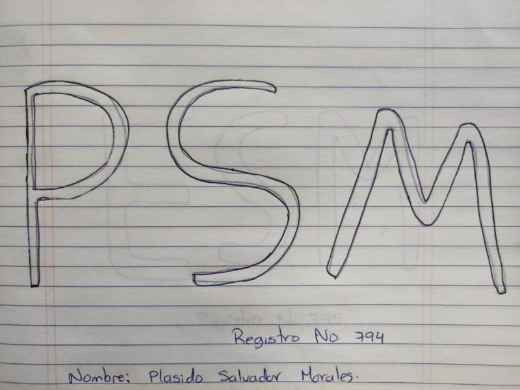 PSM
Registro No 794
Nombre: Plasido Salvador Morales.